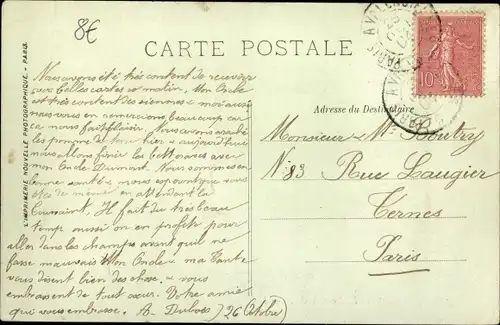 8€
CARTE POSTALE
L'IMPRIMERIE NOUVELLE PHOTOGRAPHIQUE - PARIS.
Adresse du Destinataire
10
Nous avons été très content de recevoir
vos belles cartes se matin. Mon Oncle
est très content des siennes & moi aussi
nous vous en remercions beaucoup car
ça nous fait plaisir. Nous avons
les pommes de terre hier & aujourd'hui
nous allons finir les betteraves avec
mon Oncle Dumont. Nous sommes en
bonne santé & nous espérons que vous
êtes de même en attendant la
Toussaint. Il fait du très beau
temps aussi on en profite pour
aller dans les champs avant qu'il ne
fasse mauvais Mon Oncle & ma Tante
vous disent bien des choses & vous
embrassent de tout cœur. Votre amie
qui vous embrasse. A. Dubois
26 Octobre
Monsieur & Me Boutry
N° 83 Rue Laugier
Ternes
Paris